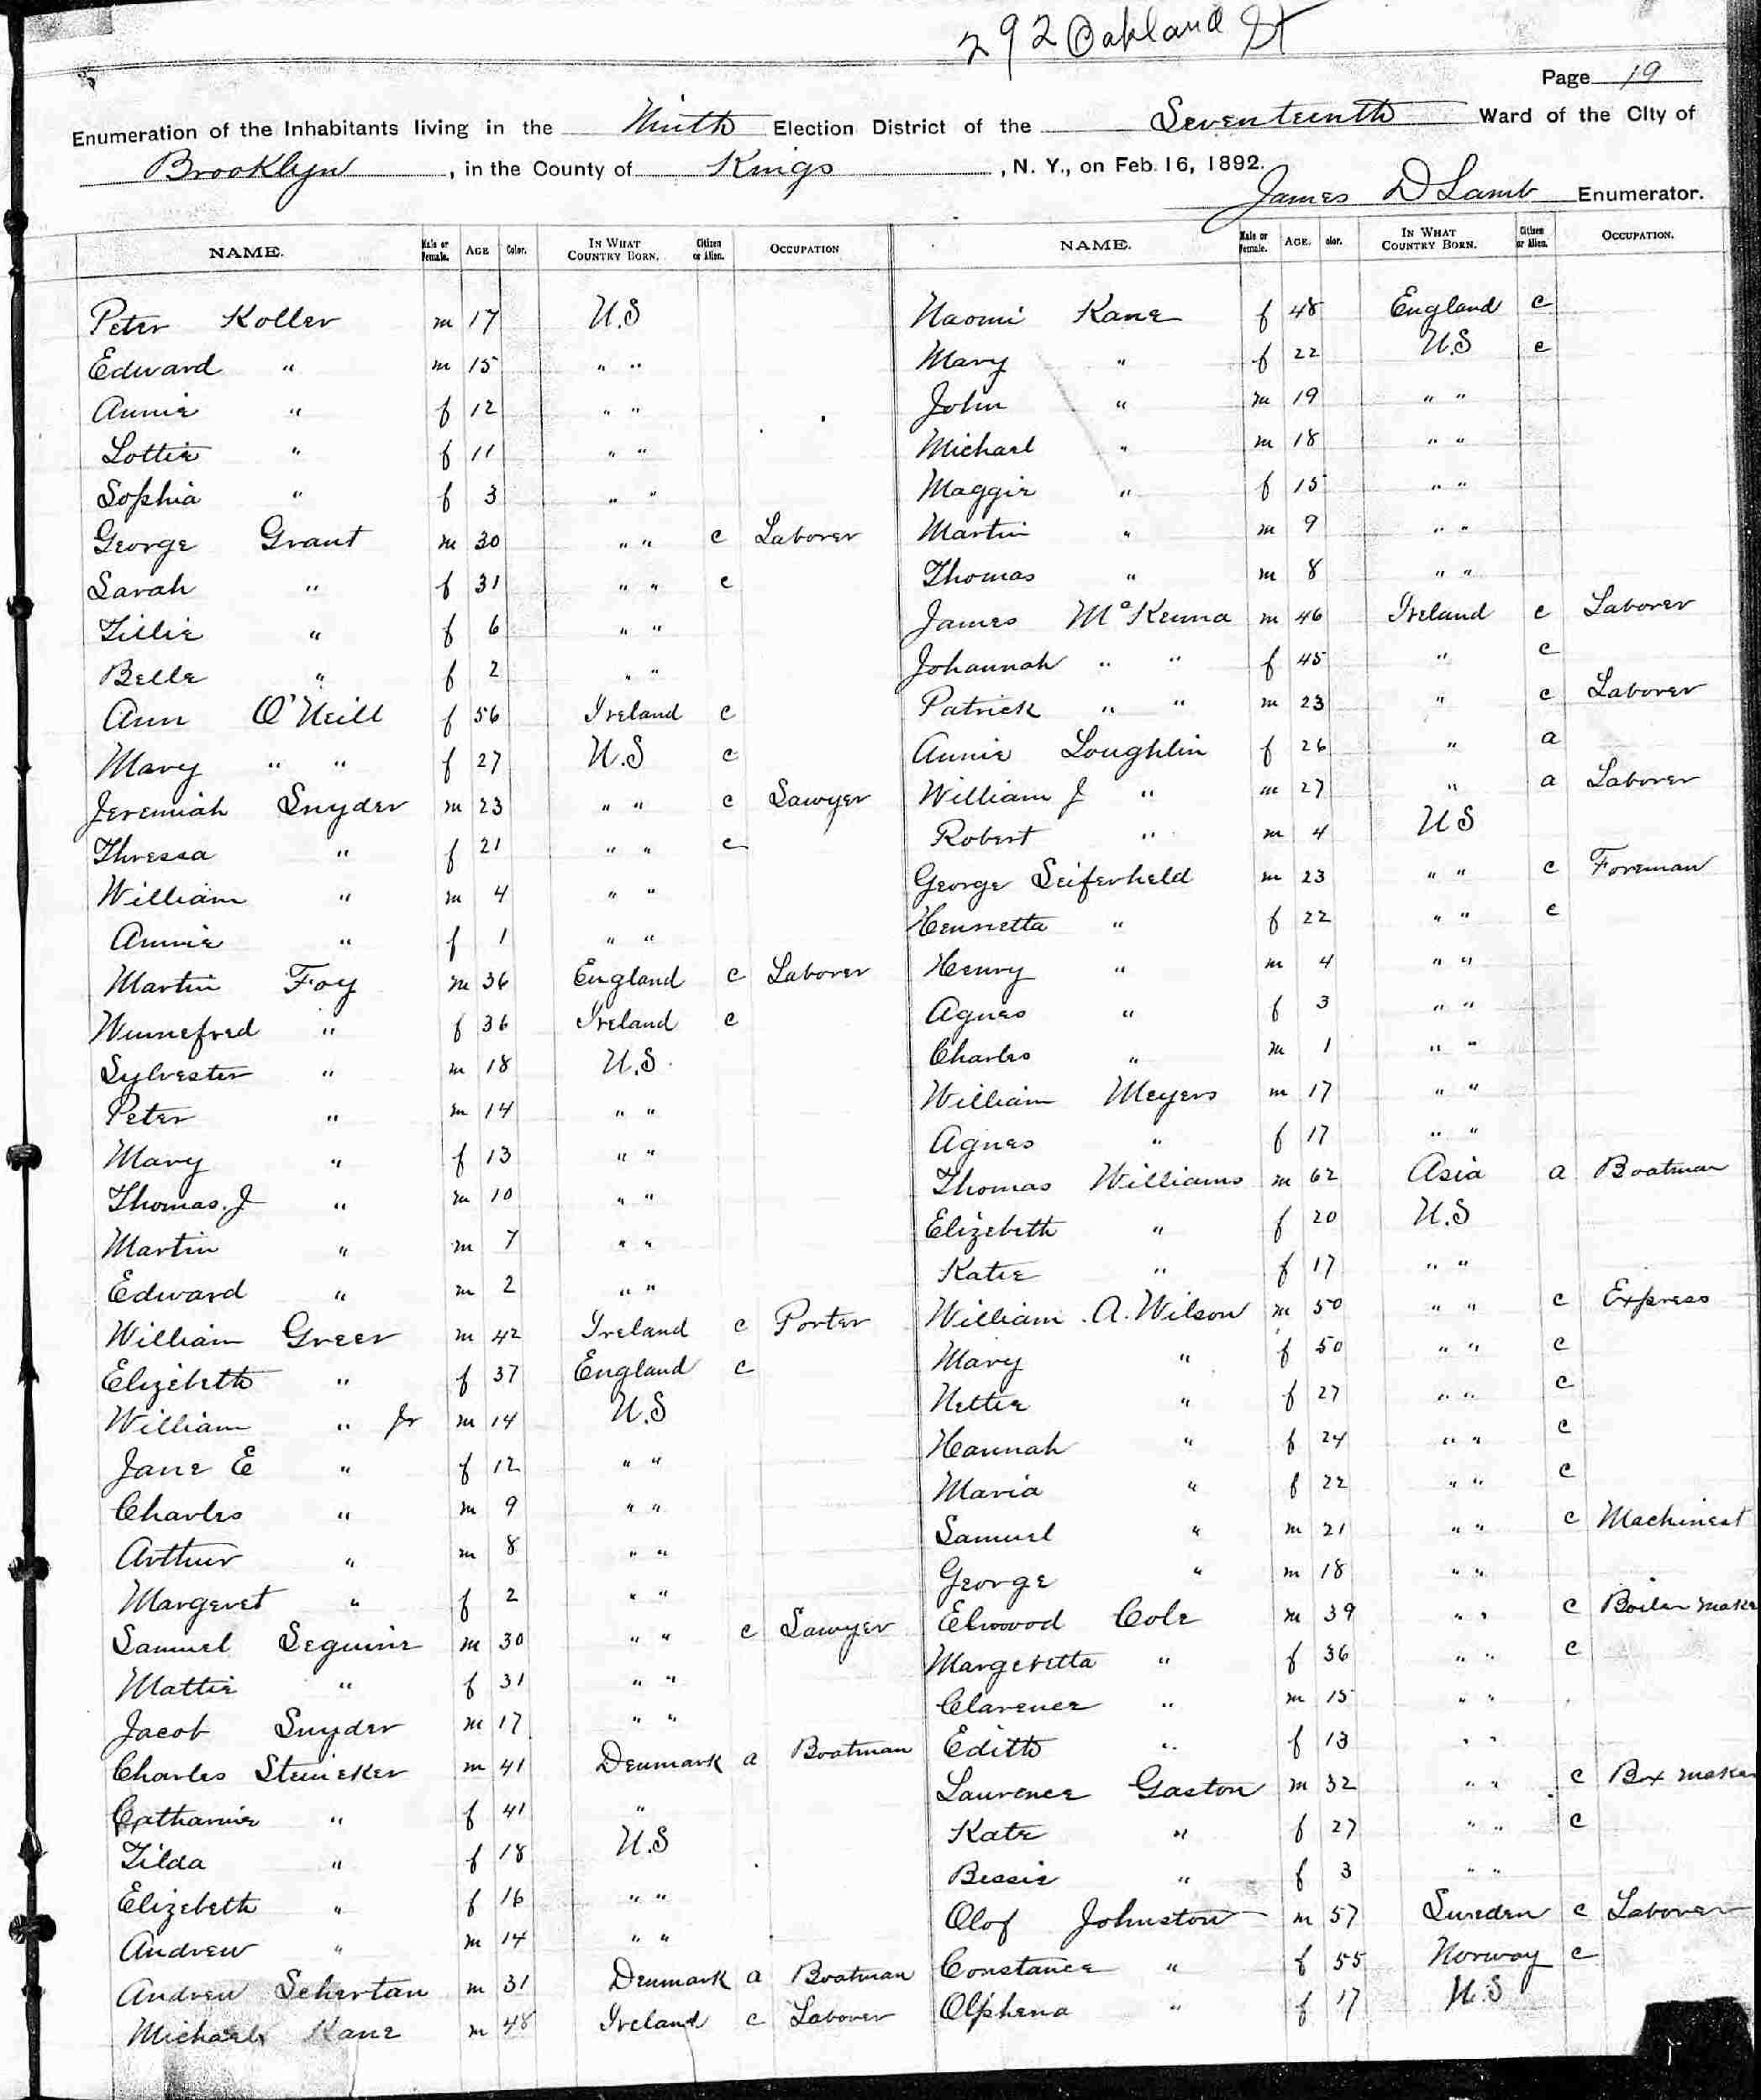 292 Oakland St
Page 19
Enumeration of the Inhabitants living in the Ninth Election District of the Seventeenth Ward of the City of
Brooklyn, in the County of Kings, N. Y., on Feb. 16, 1892.
James D Lamb Enumerator.
NAME. Male or Female. AGE Color. IN WHAT COUNTRY BORN. Citizen or Alien. OCCUPATION
Peter Koller m 17 U.S
Edward " m 15 " "
Annie " f 12 " "
Lottie " f 11 " "
Sophia " f 3 " "
George Grant m 30 " " c Laborer
Sarah " f 31 " " c
Tillie " f 6 " "
Belle " f 2 " "
Ann O'Neill f 56 Ireland c
Mary " " f 27 U.S c
Jeremiah Snyder m 23 " " c Sawyer
Thressa " f 21 " " c
William " m 4 " "
Annie " f 1 " "
Martin Foy m 36 England c Laborer
Winnefred " f 36 Ireland c
Sylvester " m 18 U.S.
Peter " m 14 " "
Mary " f 13 " "
Thomas. J " m 10 " "
Martin " m 7 " "
Edward " m 2 " "
William Greer m 42 Ireland c Porter
Elizebeth " f 37 England c
William " Jr m 14 U.S
Jane E " f 12 " "
Charles " m 9 " "
Arthur " m 8 " "
Margeret " f 2 " "
Samuel Seguine m 30 " " c Sawyer
Mattie " f 31 " "
Jacob Snyder m 17 " "
Charles Steineker m 41 Denmark a Boatman
Catharine " f 41 "
Tilda " f 18 U.S
Elizebeth " f 16 " "
Andrew " m 14 " "
Andrew Schertan m 31 Denmark a Boatman
Michael Kane m 48 Ireland c Laborer
NAME. Male or Female. AGE. olor. IN WHAT COUNTRY BORN. Citizen or Alien. OCCUPATION.
Naomi Kane f 48 England c
Mary " f 22 U.S c
John " m 19 " "
Michael " m 18 " "
Maggie " f 15 " "
Martin " m 9 " "
Thomas " m 8 " "
James McKenna m 46 Ireland c Laborer
Johannah " " f 45 " c
Patrick " " m 23 " c Laborer
Annie Loughlin f 26 " a
William J " m 27 " a Laborer
Robert " m 4 U S
George Seiferheld m 23 " " c Foreman
Henrietta " f 22 " " c
Henry " m 4 " "
Agnes " f 3 " "
Charles " m 1 " "
William Meyers m 17 " "
Agnes " f 17 " "
Thomas Williams m 62 Asia a Boatman
Elizebeth " f 20 U.S
Katie " f 17 " "
William A. Wilson m 50 " " c Express
Mary " f 50 " " c
Nettie " f 27 " " c
Hannah " f 24 " " c
Maria " f 22 " " c
Samuel " m 21 " " c Machinest
George " m 18 " "
Elwood Cole m 39 " " c Boiler make
Margeretta " f 36 " " c
Clarence " m 15 " "
Edith " f 13 " "
Laurence Gaston m 32 " " c Box make
Kate " f 27 " " c
Bessie " f 3 " "
Olof Johnston m 57 Sweden c Laborer
Constance " f 55 Norway c
Olphena " f 17 U.S